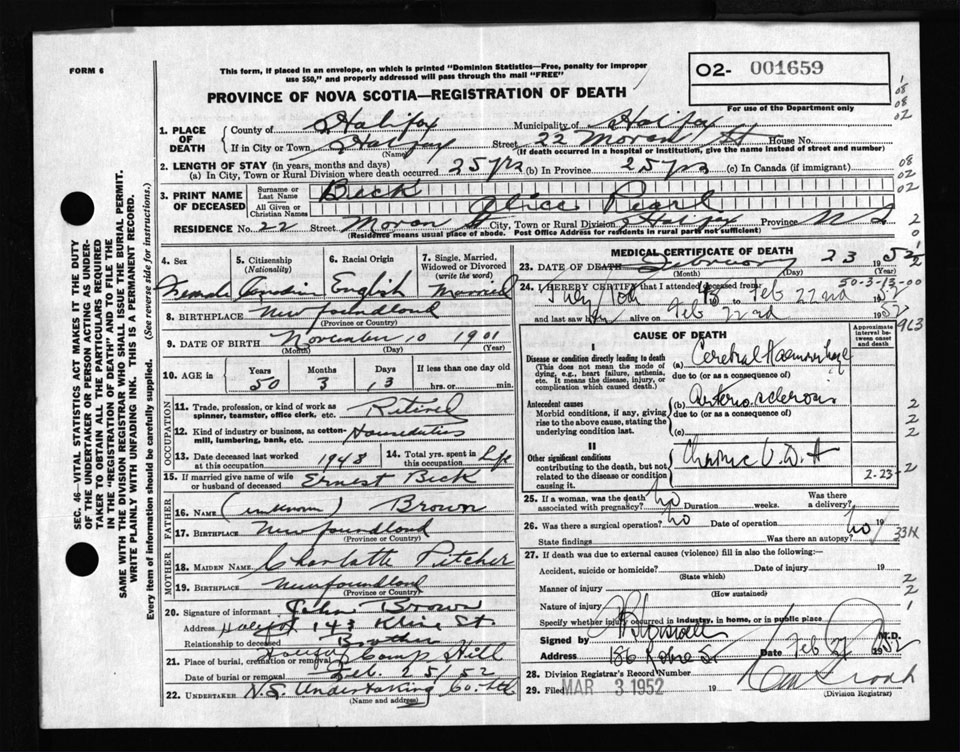 FORM 6
This form, if placed in an envelope, on which is printed "Dominion Statistics—Free, penalty for improper
use $50," and properly addressed will pass through the mail "FREE"
PROVINCE OF NOVA SCOTIA—REGISTRATION OF DEATH
02- 001659
For use of the Department only
1. PLACE OF DEATH
County of Halifax Municipality of Halifax
If in City or Town Halifax (Name) Street 22 Moran St House No.
(If death occurred in a hospital or institution, give the name instead of street and number)
2. LENGTH OF STAY (in years, months and days)
(a) In City, Town or Rural Division where death occurred 25 yrs (b) In Province 25 yrs (c) In Canada (if immigrant)
3. PRINT NAME OF DECEASED
Surname or Last Name Beck
All Given or Christian Names Alice Pearl
RESIDENCE No. 22 Street Moran St City, Town or Rural Division Halifax Province N S
(Residence means usual place of abode. Post Office Address for residents in rural parts not sufficient)
4. Sex Female
5. Citizenship (Nationality) Canadian
6. Racial Origin English
7. Single, Married, Widowed or Divorced (write the word) Married
8. BIRTHPLACE Newfoundland
(Province or Country)
9. DATE OF BIRTH November 10 1901
(Month) (Day) (Year)
10. AGE in Years 50 Months 3 Days 13 If less than one day old
hrs. or min.
OCCUPATION
11. Trade, profession, or kind of work as spinner, teamster, office clerk, etc. Retired
12. Kind of industry or business, as cotton-mill, lumbering, bank, etc. Houseduties
13. Date deceased last worked at this occupation 1948 14. Total yrs. spent in this occupation Life
15. If married give name of wife or husband of deceased Ernest Beck
FATHER
16. NAME (unknown) Brown
17. BIRTHPLACE Newfoundland
(Province or Country)
MOTHER
18. MAIDEN NAME Charlotte Pitcher
19. BIRTHPLACE Newfoundland
(Province or Country)
20. Signature of informant John Brown
Address Halifax 143 Kline St
Relationship to deceased Brother
21. Place of burial, cremation or removal Halifax Camp Hill
Date of burial or removal Feb. 25/52
22. UNDERTAKER N.S. Undertaking Co. Ltd
(Name and address)
MEDICAL CERTIFICATE OF DEATH
23. DATE OF DEATH February 23 1952
(Month) (Day) (Year)
24. I HEREBY CERTIFY that I attended deceased from
to Feb 22nd 1952
and last saw h alive on Feb 22nd 1952
50-3-13-00
CAUSE OF DEATH
Approximate interval between onset and death
I
Disease or condition directly leading to death
(This does not mean the mode of dying, e.g., heart failure, asthenia, etc. It means the disease, injury, or complication which caused death.)
(a) Cerebral Haemorrhage
due to (or as a consequence of)
Antecedent causes
Morbid conditions, if any, giving rise to the above cause, stating the underlying condition last.
(b) Arteriosclerosis
due to (or as a consequence of)
(c)
II
Other significant conditions
contributing to the death, but not related to the disease or condition causing it.
Chronic
2-23-2
25. If a woman, was the death associated with pregnancy? no Duration weeks. Was there a delivery?
26. Was there a surgical operation? no Date of operation 19
State findings Was there an autopsy? no
27. If death was due to external causes (violence) fill in also the following:—
Accident, suicide or homicide? Date of injury 19
(State which)
Manner of injury
(How sustained)
Nature of injury
Specify whether injury occurred in industry, in home, or in public place
Signed by M.D.
Address 186 Date Feb 27 1952
28. Division Registrar's Record Number
29. Filed MAR 3 1952 19
(Division Registrar)
SEC. 46—VITAL STATISTICS ACT MAKES IT THE DUTY
OF THE UNDERTAKER OR PERSON ACTING AS UNDER-
TAKER TO OBTAIN ALL THE PARTICULARS REQUIRED
IN THE "REGISTRATION OF DEATH" AND TO FILE THE
SAME WITH THE DIVISION REGISTRAR WHO SHALL ISSUE THE BURIAL PERMIT.
WRITE PLAINLY WITH UNFADING INK. THIS IS A PERMANENT RECORD.
Every item of information should be carefully supplied. (See reverse side for instructions.)